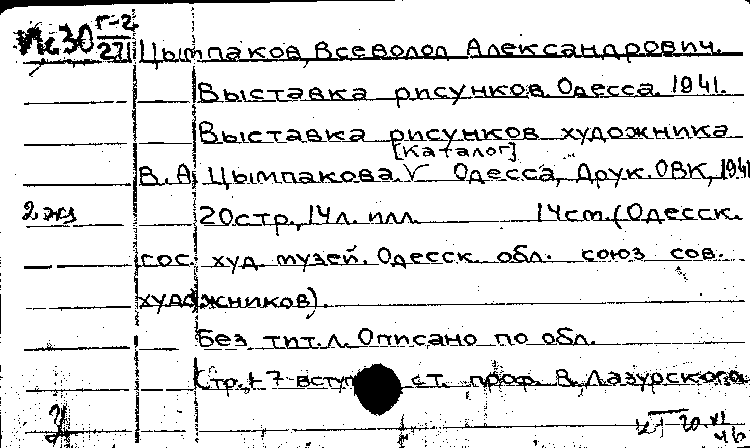 Ис30 Г-2/271
Цымпаков, Всеволод Александрович.
Выставка рисунков. Одесса. 1941.
Выставка рисунков художника
[каталог]
В.А. Цымпакова. V Одесса, Друк. ОВК, 1941
2 экз 20стр., 14л. илл. 14см. (Одесск.
гос. худ. музей. Одесск. обл. союз сов.
художников).
Без тит. л. Описано по обл.
Стр. 1-7 вступ. ст. проф. В. Лазурского.